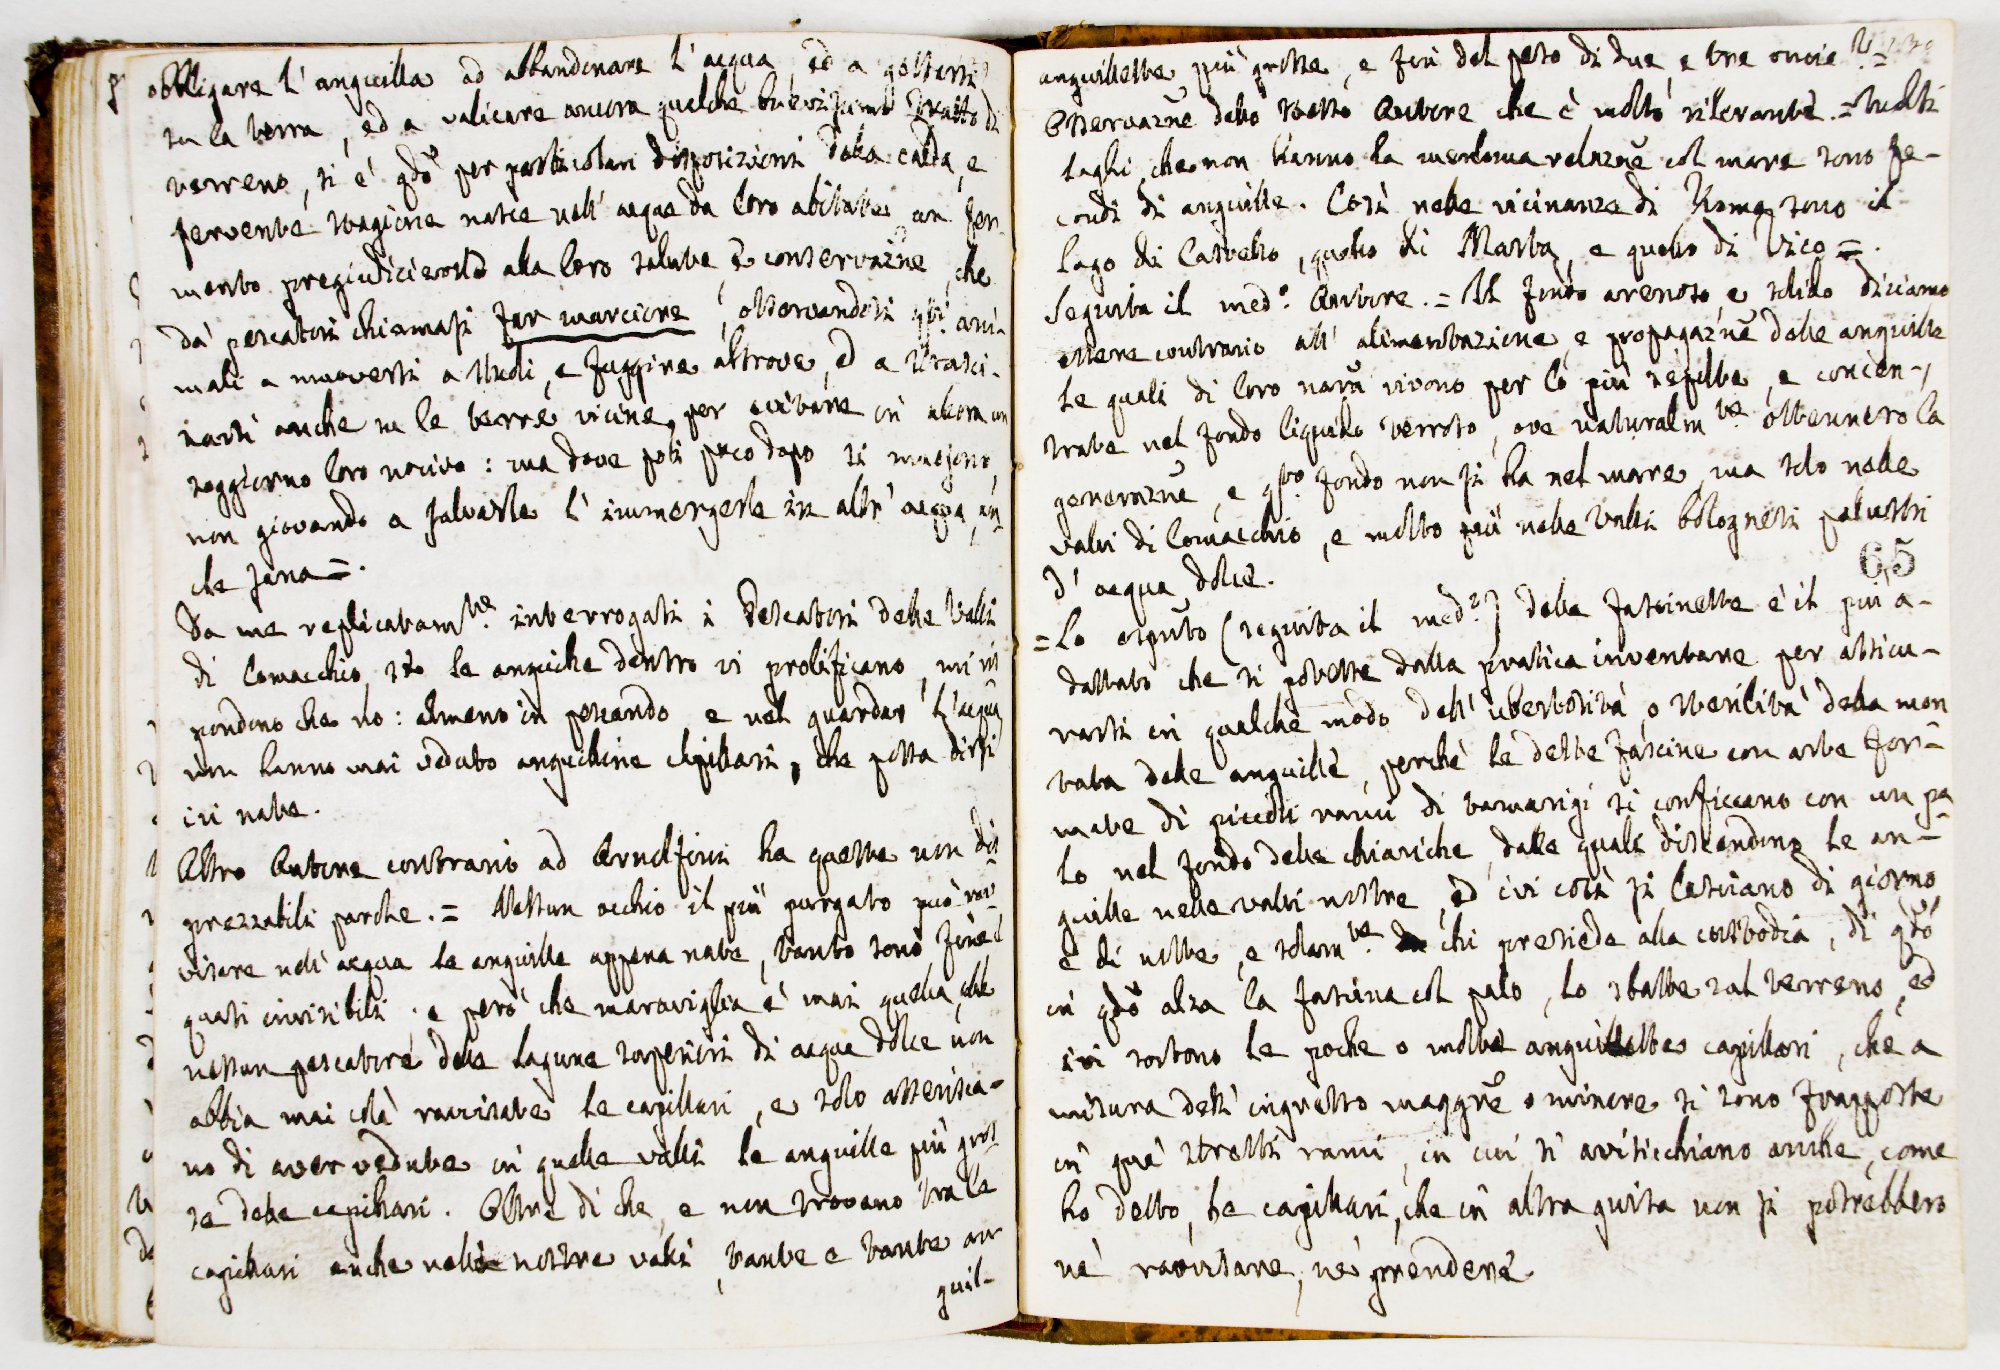 obbligare l' anguilla ad abbandonare l' acqua, ed a gettarsi
su la terra, ed a valicare ancora qualche brevissimo tratto di
terreno, si è qdo per particolari disposizioni della calda, e
fervente stagione nasce nell' acque da loro abitate un fer-
mento pregiudicievole alla loro salute, e conservazne, che
da' pescatori chiamasi far marcione, osservandosi qti ani-
mali a muoversi a stuoli, e fuggire altrove, ed a strasci-
narsi anche su le terre vicine, per evitare in allora un
soggiorno loro nocivo: ma dove poti poco dopo si muojono,
non giovando a salvarle l' immergerle in altr' acqua, an-
che sana =.
Da me replicatamte interrogati i Pescatori delle Valli
di Comacchio, se le anguille dentro vi prolificano, mi ris
pondono che no: almeno in pescando, e nel guardar l' acqua
non hanno mai veduto anguilline capillari, che possa dirsi
ivi nate.
Altro Autore contrario ad Arnolfini ha queste non dis
prezzabili parole. = Nessun occhio il più purgato può rav
visare nell' acqua le anguille appena nate, tanto sono fine e
quasi invisibili; e però che maraviglia è mai quella, che
nessun pescatore delle lagune superiori di acque dolce non
abbia mai colà ravvisate le capillari, e solo asserisca-
no di aver vedute in quelle valli le anguille più gros
se delle capillari. Oltre di che, e non trovano tra le
capillari anche nelle nostre valli, tante e tante an
guil-
anguillette più grosse, e fin del peso di due, e tre oncie? =
Osservazne dello stesso Autore che è molto rilevante. = Molti
laghi, che non hanno la menoma relazne col mare sono fe-
condi di anguille. Così nelle vicinanze di Roma sono il
lago di Castello, quello di Marta, e quello di Vico =.
Seguita il medo. Autore. = Il fondo arenoso, e solido diciamo
essere contrario all' alimentazione, e propagazne delle anguille
le quali di loro nara vivono per lo più sepolte, e concen-
trate nel fondo liquido terroso, ove naturalmte ottennero la
generazne, e qto fondo non si ha nel mare, ma solo nelle
valli di Comacchio, e molto più nelle Valli bolognesi palustri
d' acqua dolce.
65
= Lo esputo (seguita il medo.) delle fascinette è il più a-
dattato che si potesse dalla pratica inventare per assicu-
rarsi in qualche modo dell' ubertosità, o sterilità della mon
tata delle anguille, perchè le dette fascine con arte for-
mate di piccoli rami di tamarigi si conficcano con un pa
lo nel fondo delle chiaviche, dalle quali discendono le an-
guille nelle valli nostre, ed ivi così si lasciano di giorno,
e di notte, e solamte chi presiede alla custodia, di qdo
in qdo alza la fascina col palo, lo sbatte sul terreno, ed
ivi sortono le poche o molte anguillette capillari, che a
misura dell' ingresso maggre o minore si sono frapposte
in que' stretti rami, in cui si aviticchiano anche, come
ho detto, le capillari, che in altra guisa non si potrebbero
nè ravvisare, nè prendere